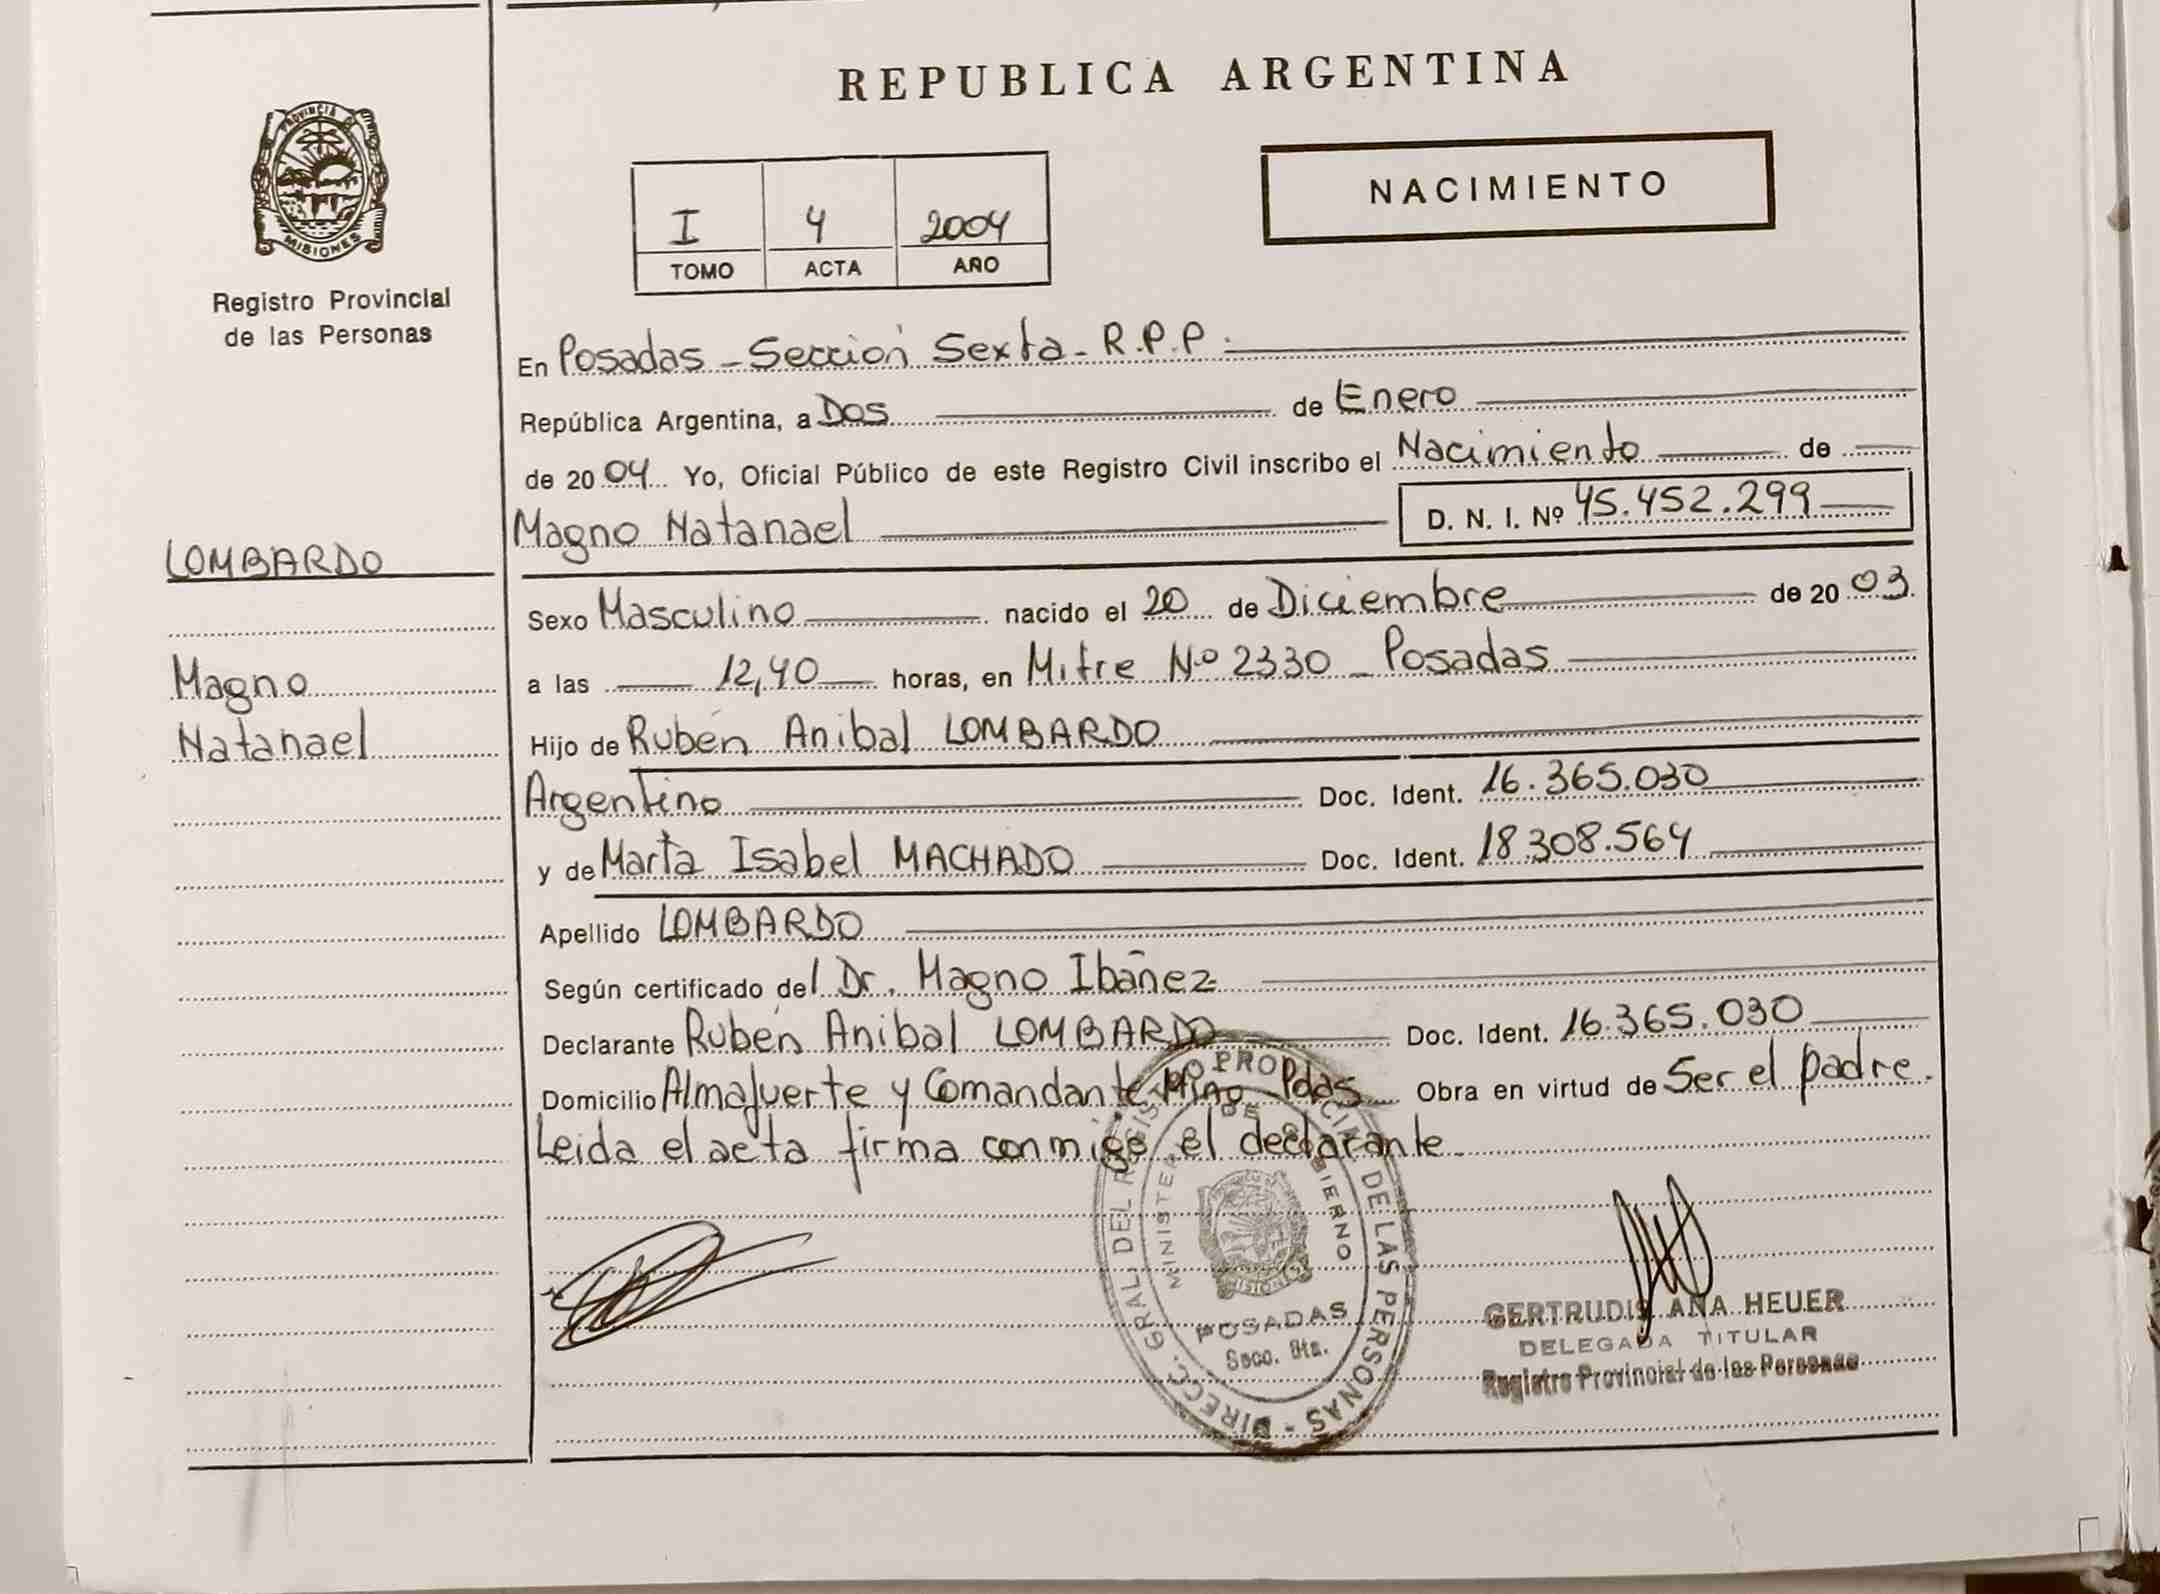 REPUBLICA ARGENTINA
PROVINCIA DE
MISIONES
Registro Provincial
de las Personas
I 4 2004
TOMO ACTA AÑO
NACIMIENTO
En Posadas - Sección Sexta - R.P.P.
República Argentina, a Dos de Enero
de 2004 Yo, Oficial Público de este Registro Civil inscribo el Nacimiento de
Magno Natanael D. N. I. Nº 45.452.299
LOMBARDO
Magno
Natanael
Sexo Masculino nacido el 20 de Diciembre de 2003
a las 12,40 horas, en Mitre Nº 2330 - Posadas
Hijo de Rubén Anibal LOMBARDO
Argentino Doc. Ident. 16.365.030
y de Marta Isabel MACHADO Doc. Ident. 18.308.564
Apellido LOMBARDO
Según certificado del Dr. Magno Ibañez
Declarante Rubén Anibal LOMBARDO Doc. Ident. 16.365.030
Domicilio Almafuerte y Comandante Miño - Pdas Obra en virtud de Ser el padre.
Leida el acta firma conmigo el declarante
DIRECC. GRAL. DEL REGISTRO PROVINCIAL DE LAS PERSONAS
MINISTERIO DE GOBIERNO
MISIONES
POSADAS
Secc. 6ta.
GERTRUDIS ANA HEUER
DELEGADA TITULAR
Registro Provincial de las Personas